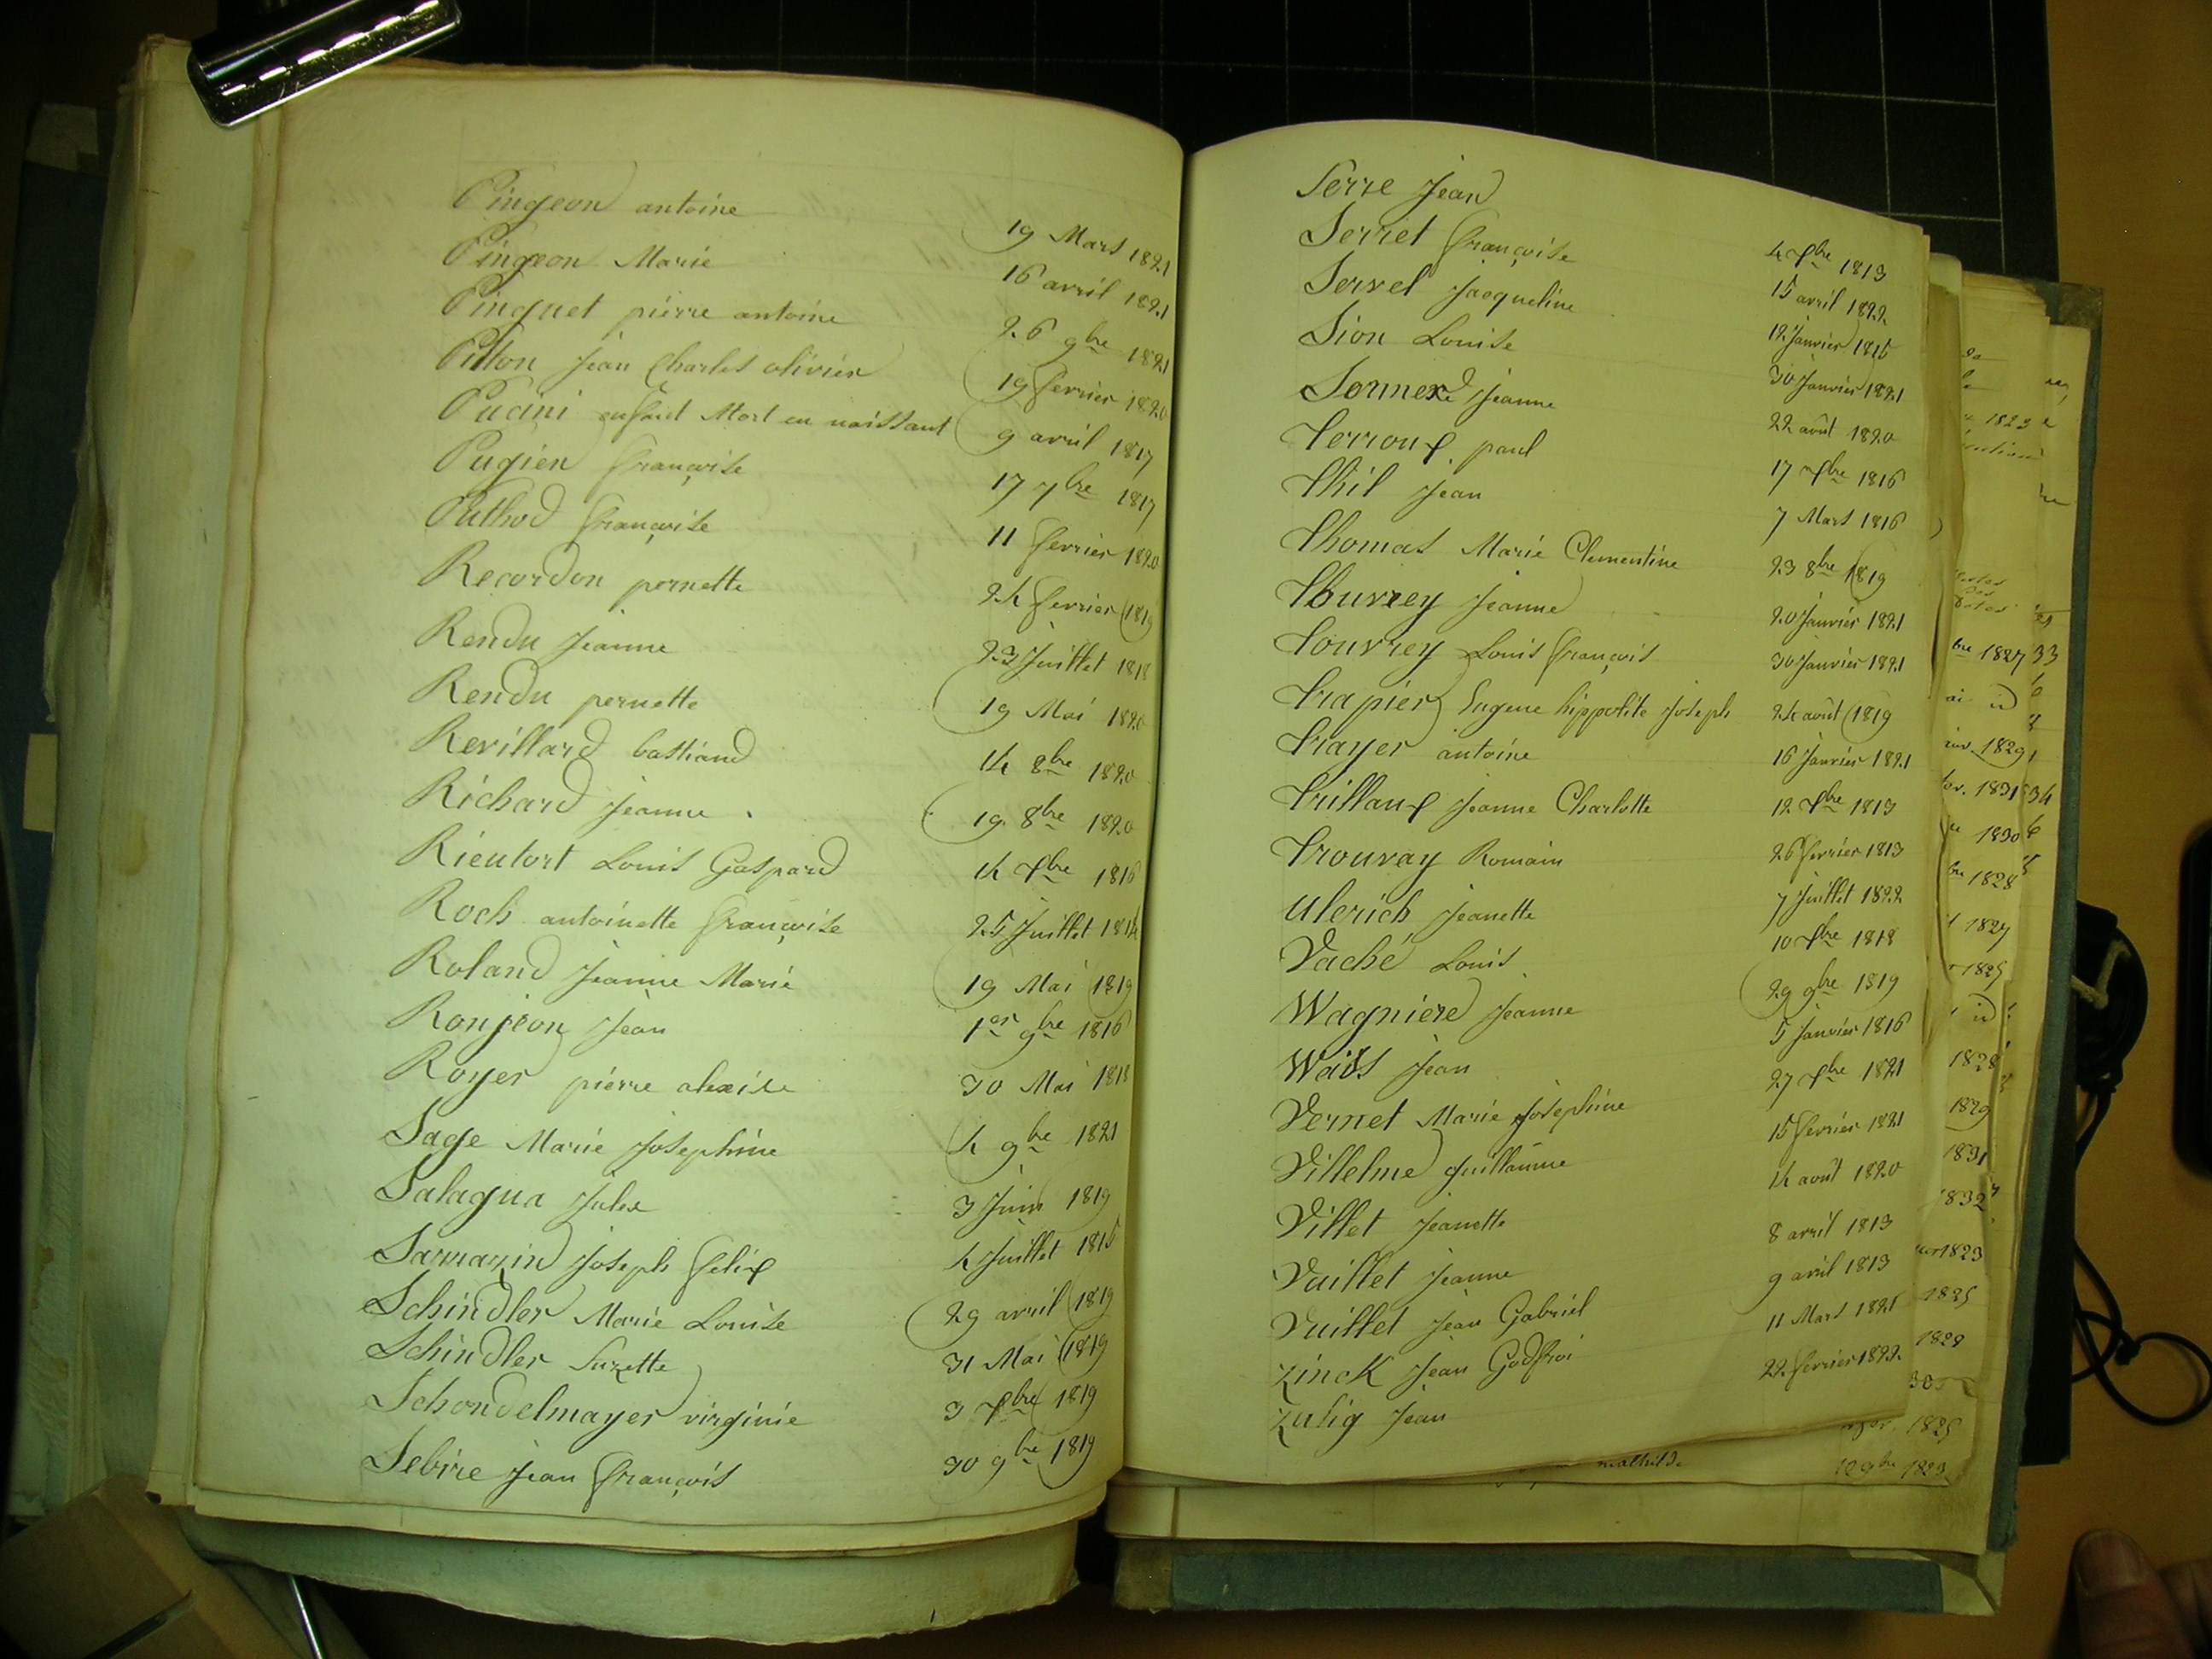 Pingeon antoine 19 Mars 1821
Pingeon Marie 16 avril 1821
Pinguet pierre antoine 26 9bre 1821
Pitton Jean Charles olivier 19 fevrier 1820
Pucini enfant Mort en naissant 9 avril 1817
Pugien françoise 17 7bre 1817
Puthod françoise 11 fevrier 1820
Recordon pernette 24 fevrier 1819
Rendu Jeanne 23 Juillet 1818
Rendu pernette 19 Mai 1820
Revillard bastiand 14 8bre 1820
Richard Jeanne 19 8bre 1820
Rieutort Louis Gaspard 14 Xbre 1816
Roch antoinette françoise 25 Juillet 1814
Roland Jeanne Marie 19 Mai 1819
Ronjeon Jean 1er 9bre 1816
Royer pierre alexise 30 Mai 1818
Sage Marie Josephine 4 9bre 1821
Salagua Jules 3 Juin 1819
Sarrazin Joseph felix 4 Juillet 1815
Schindler Marie Louise 29 avril 1819
Schindler Suzette 31 Mai 1819
Schondelmayer virginie 3 Xbre 1819
Sebire Jean françois 30 9bre 1819
Serre Jean 4 Xbre 1813
Serret françoise 15 avril 1822
Servel Jacqueline 12 Janvier 1815
Sion Louise 30 Janvier 1821
Sormerd Jeanne 22 août 1820
Terroux paul 17 Xbre 1816
Thil Jean 7 Mars 1816
Thomas Marie Clementine 23 8bre 1819
Thuvrey Jeanne 20 Janvier 1821
Touvrey Louis françois 30 Janvier 1821
Trapier Eugene hippolite Joseph 24 août 1819
Trayer antoine 16 Janvier 1821
Trillaux Jeanne Charlotte 12 Xbre 1813
Trouvay Romain 26 fevrier 1813
Ulerich Jeanette 7 Juillet 1822
Vaché Louis 10 Xbre 1818
Wagniere Jeanne 29 9bre 1819
Waiss Jean 5 Janvier 1816
Vernet Marie Josephine 27 Xbre 1821
Villelme guillaume 15 fevrier 1821
Villet Jeanette 14 août 1820
Vuillet Jeanne 8 avril 1813
Vuillet Jean Gabriel 9 avril 1813
Zinck Jean Godfroi 11 Mars 1821
Zulig Jean 22 fevrier 1822
1823
bre 1827 33
1829
1831 34
1830
1828
1827
1825
1828
1829
1831
1832
1823
1825
1828
30
1825
mathilde 12 9bre 1823